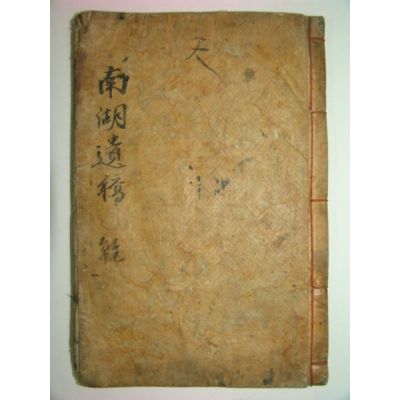 天
南湖遺稿